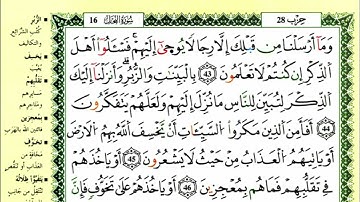 حزب 28
سورة النحل 16
وَمَا أَرْسَلْنَا مِن قَبْلِكَ إِلَّا رِجَالًا يُوحَىٰ إِلَيْهِمْ فَسْـَٔلُوا أَهْلَ
الذِّكْرِ إِن كُنتُمْ لَا تَعْلَمُونَ 43 بِالْبَيِّنَاتِ وَالزُّبُرِ وَأَنزَلْنَا إِلَيْكَ
الذِّكْرَ لِتُبَيِّنَ لِلنَّاسِ مَا نُزِّلَ إِلَيْهِمْ وَلَعَلَّهُمْ يَتَفَكَّرُونَ
44 أَفَأَمِنَ الَّذِينَ مَكَرُوا السَّيِّئَاتِ أَن يَخْسِفَ اللَّهُ بِهِمُ الْأَرْضَ
أَوْ يَأْتِيَهُمُ الْعَذَابُ مِنْ حَيْثُ لَا يَشْعُرُونَ 45 أَوْ يَأْخُذَهُمْ
فِي تَقَلُّبِهِمْ فَمَا هُم بِمُعْجِزِينَ 46 أَوْ يَأْخُذَهُمْ عَلَىٰ تَخَوُّفٍ فَإِنَّ
الزُّبُرِ
كتب الشرائع
والتكاليف
يَخْسِفَ
تَقَلُّبِهِمْ
بِمُعْجِزِينَ
فائتين الله بالهرب
تَخَوُّفٍ